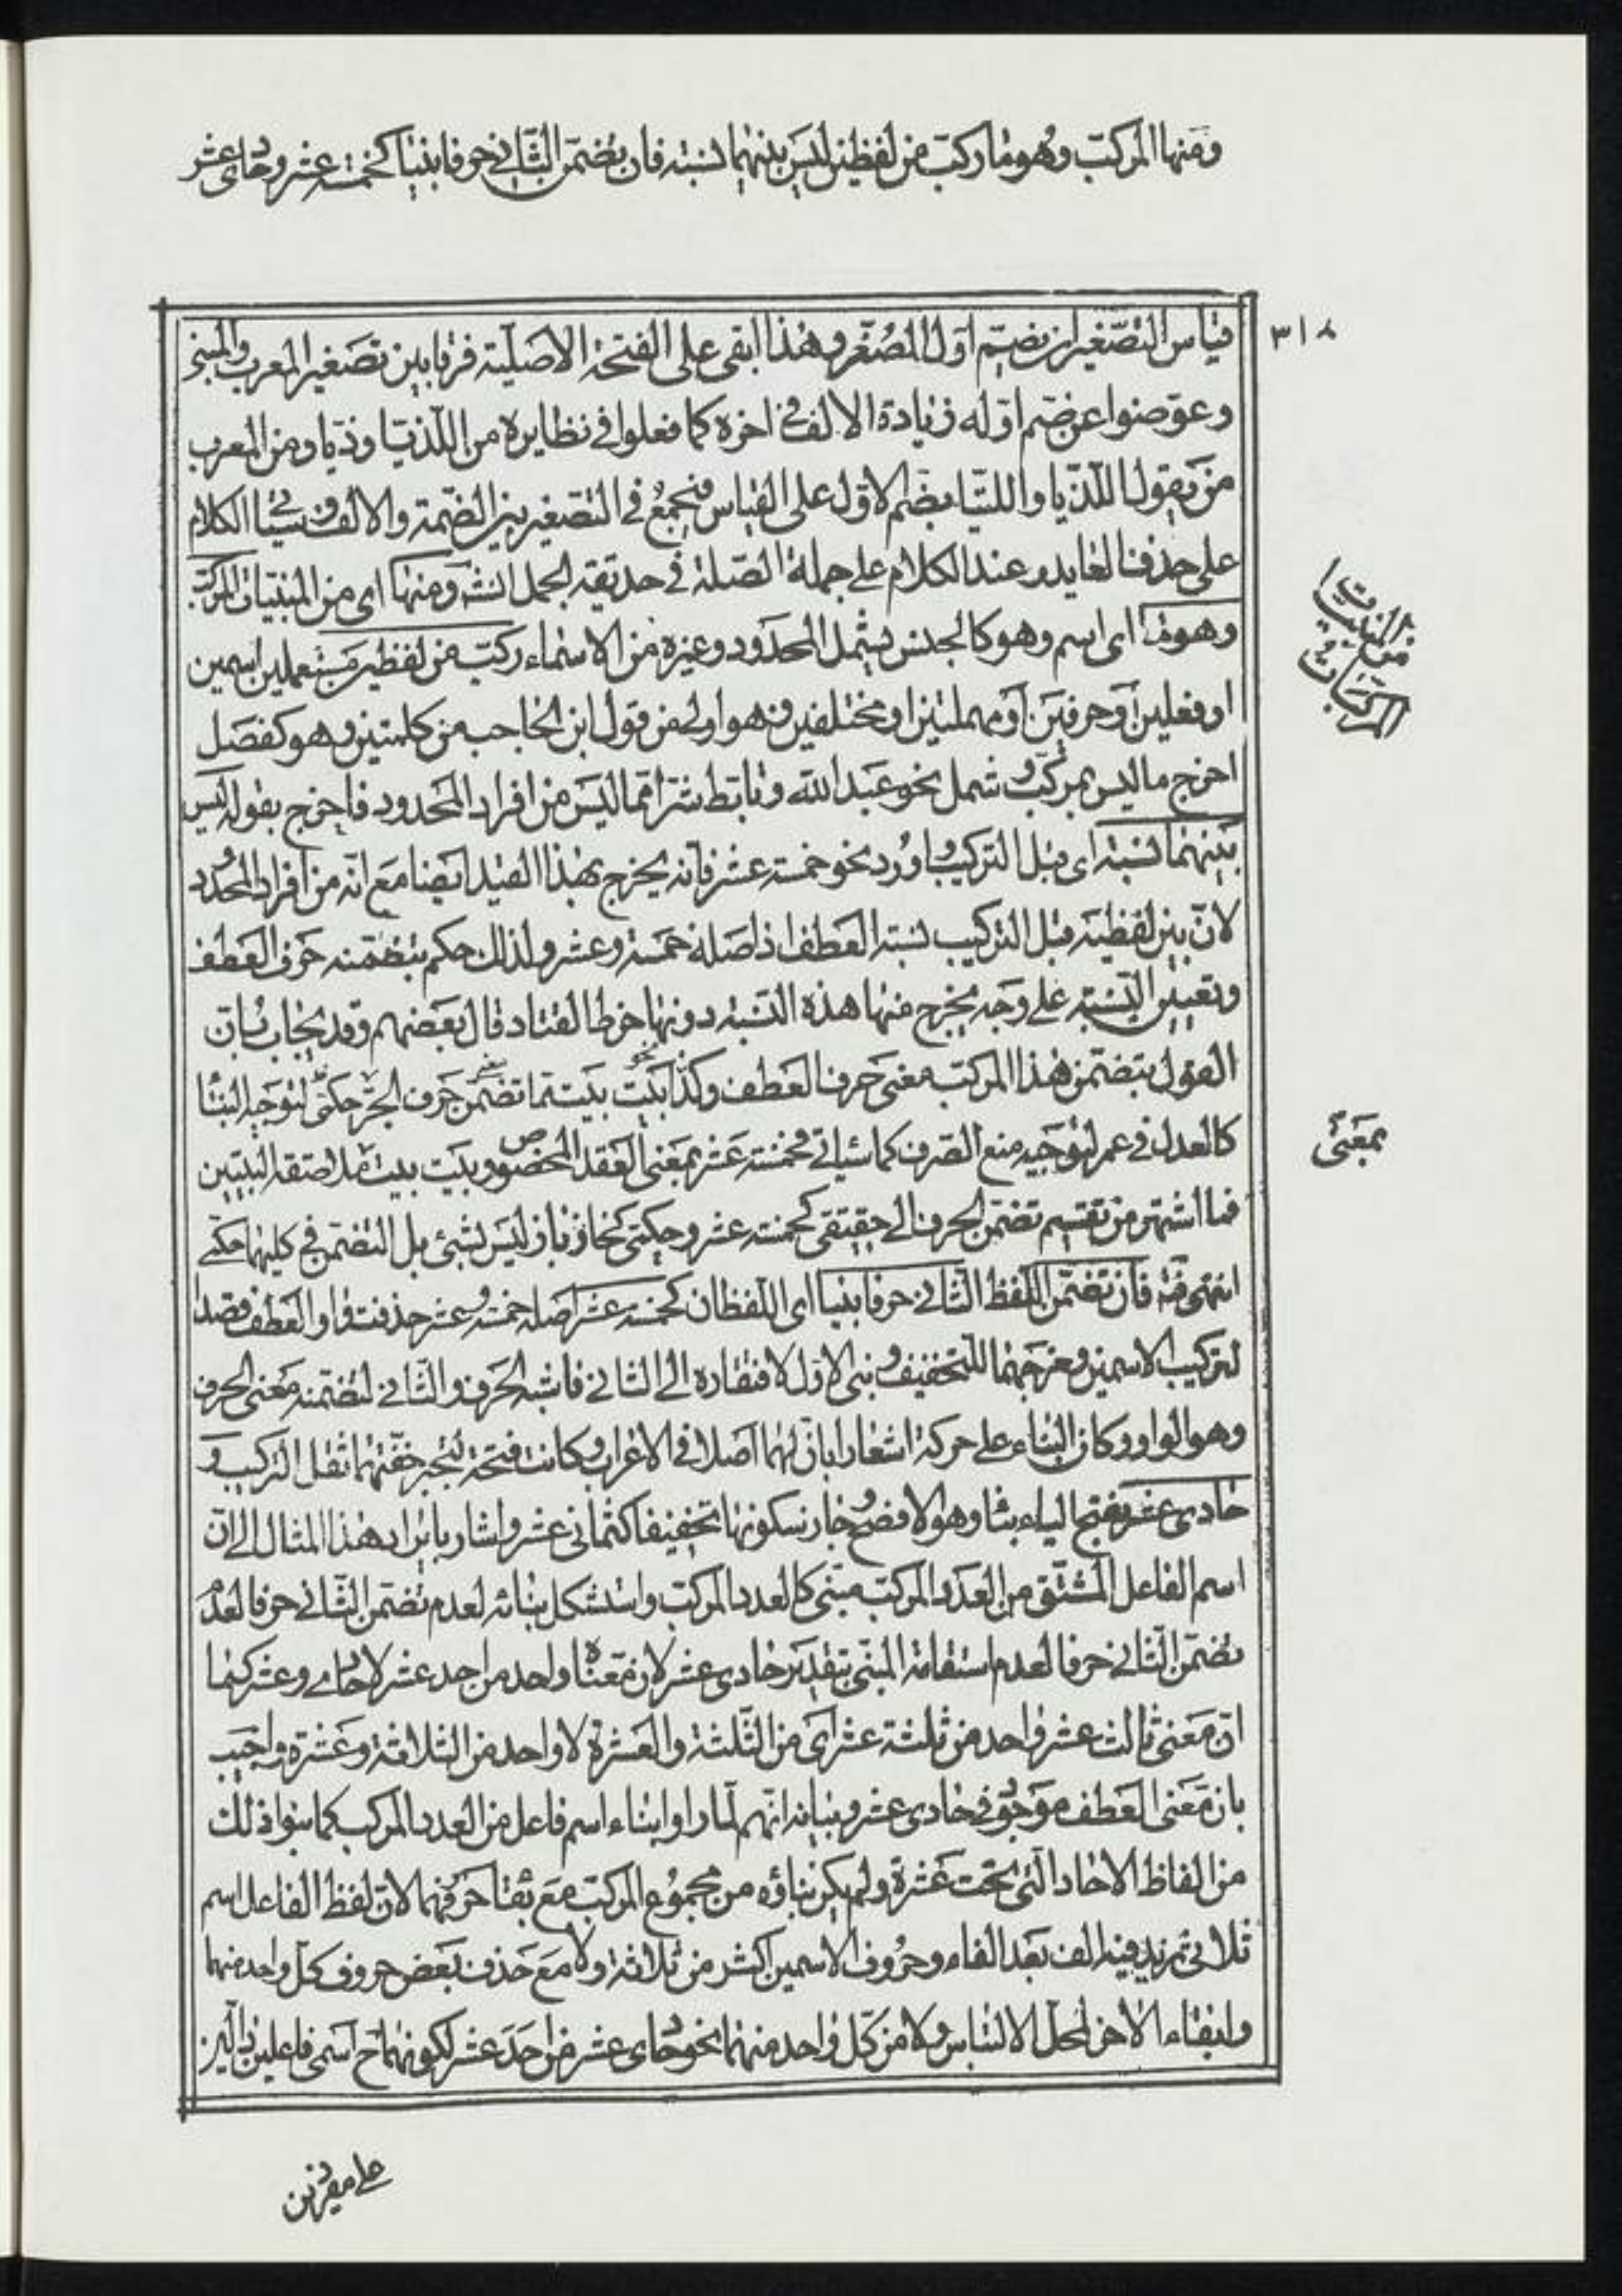 ومنها المركب وهو ما ركب من لفظين ليس بينهما نسبته فان تضمن الثاني حرفا بنيا كخمسة عشر وحادى عشر
٣١٨
قياس التصغير ان يضم اول المصغر وهذا ابقى على الفتحة الاصلية فرقا بين تصغير المعرب والمبنى
وعوضوا عن ضم اوله زيادة الالف في اخره كما فعلوا في نظايره من اللذيا وذيا ومن العرب
من يقول اللذيا واللتيا بضم الاول على القياس فيجمع في التصغير بين الضمة والالف وسيأتي الكلام
على حذف العايد عند الكلام على جملة الصلة في حديقة الجمل انش ومنها اى من المبنيات المركب
وهو ما اى اسم وهو كالجنس يشمل المحدود وغيره من الاسماء ركب من لفظين مستعملين اسمين
او فعلين او حرفين او مهملتين او مختلفين فهو اولى من قول ابن الحاجب من كلمتين وهو كفصل
اخرج ما ليس بمركب وشمل نحو عبد الله وتابط شرا مما ليس من افراد المحدود فاخرج بقوله ليس
بينهما نسبته اى قبل التركيب واورد نحو خمسة عشر فانه يخرج بهذا القيد ايضا مع انه من افراد المحدود
لان بين لفظيه قبل التركيب نسبة العطف اذ اصله خمسة وعشر ولذلك حكم بتضمنه حرف العطف
وتعيين النسبة على وجه يخرج منها هذه النسبة دونها خرط القتاد قال بعضهم وقد يجاب بان
القول بتضمن هذا المركب معنى حرف العطف وكذا نحو بيت بيت مما تضمن غير حرف الجر حكمى لتوجيه البناء
كالعدل في عمر لتوجيه منع الصرف كما سياتي فخمسة عشر بمعنى العقد المخصوص وبيت بيت ملاصقة البيتين
فما اشتهر من تقسيم تضمن الحرف الى حقيقى كخمسة عشر وحكمى كخازباز ليس بشئ بل التضمن في كليهما حكمى
انتهى فان تضمن اللفظ الثاني حرفا بنيا اى اللفظان كخمسة عشر اصله خمسة وعشر حذفت واو العطف قصدا
لتركيب الاسمين ومزجهما للتخفيف وبنى الاول لافتقاره الى الثاني فاشبه الحرف والثاني لتضمنه معنى الحرف
وهو الواو وكان البناء على حركة اشعارا بان لهما اصلا في الاعراب وكانت فتحة ليجبر خفتهما ثقل التركيب و
حادى عشر بفتح الياء بناء وهو الافصح وجاز سكونها تخفيفا كثمانى عشر واشار بايراد هذا المثال الى ان
اسم الفاعل المشتق من العدد المركب مبنى كالعدد المركب واستشكل بنائه لعدم تضمن الثاني حرفا لعدم
تضمن الثاني حرفا لعدم استقامة المبنى بتقدير حادى عشر لان معناه واحد من احد عشر لا حادى وعشر كما
ان معنى ثالث عشر واحد من ثلثة عشر اى من الثلثة والعشرة لا واحد من الثلاثة وعشرة واجيب
بان معنى العطف موجود في حادى عشر وبيانه انهم لما راوا بناء اسم فاعل من العدد المركب كما بنوا ذلك
من الفاظ الاحاد التى تحت عشرة ولم يمكن بناؤه من مجموع المركب مع بقاء حرفهما لان لفظ الفاعل اسم
ثلاثى تزيد فيه الف بعد الفاء وحروف الاسمين اكثر من ثلاثة ولا مع حذف بعض حروف كل واحد منهما
وابقاء الاخر لمحل الالتباس ولا من كل واحد منهما نحو حادى عشر من احد عشر لكونهما ح اسمى فاعلين
من المبنيات
المركبات
بمعنى